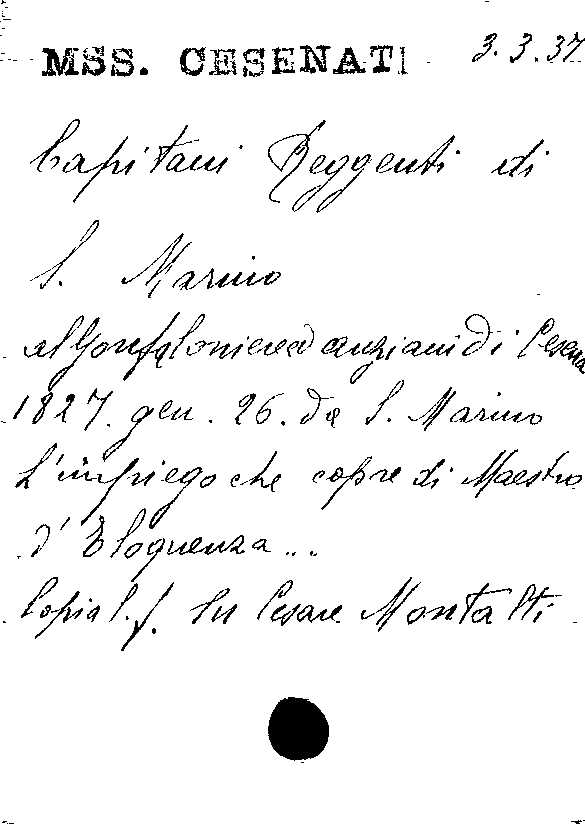 MSS. CESENATI 3.3.37
Capitani Reggenti di
S. Marino
al Gonfaloniere ed anziani di Cesena
1827. gen. 26. da S. Marino
L'impiego che copre di Maestro
d'Eloquenza...
Copia l. f. Su Cesare Montalti